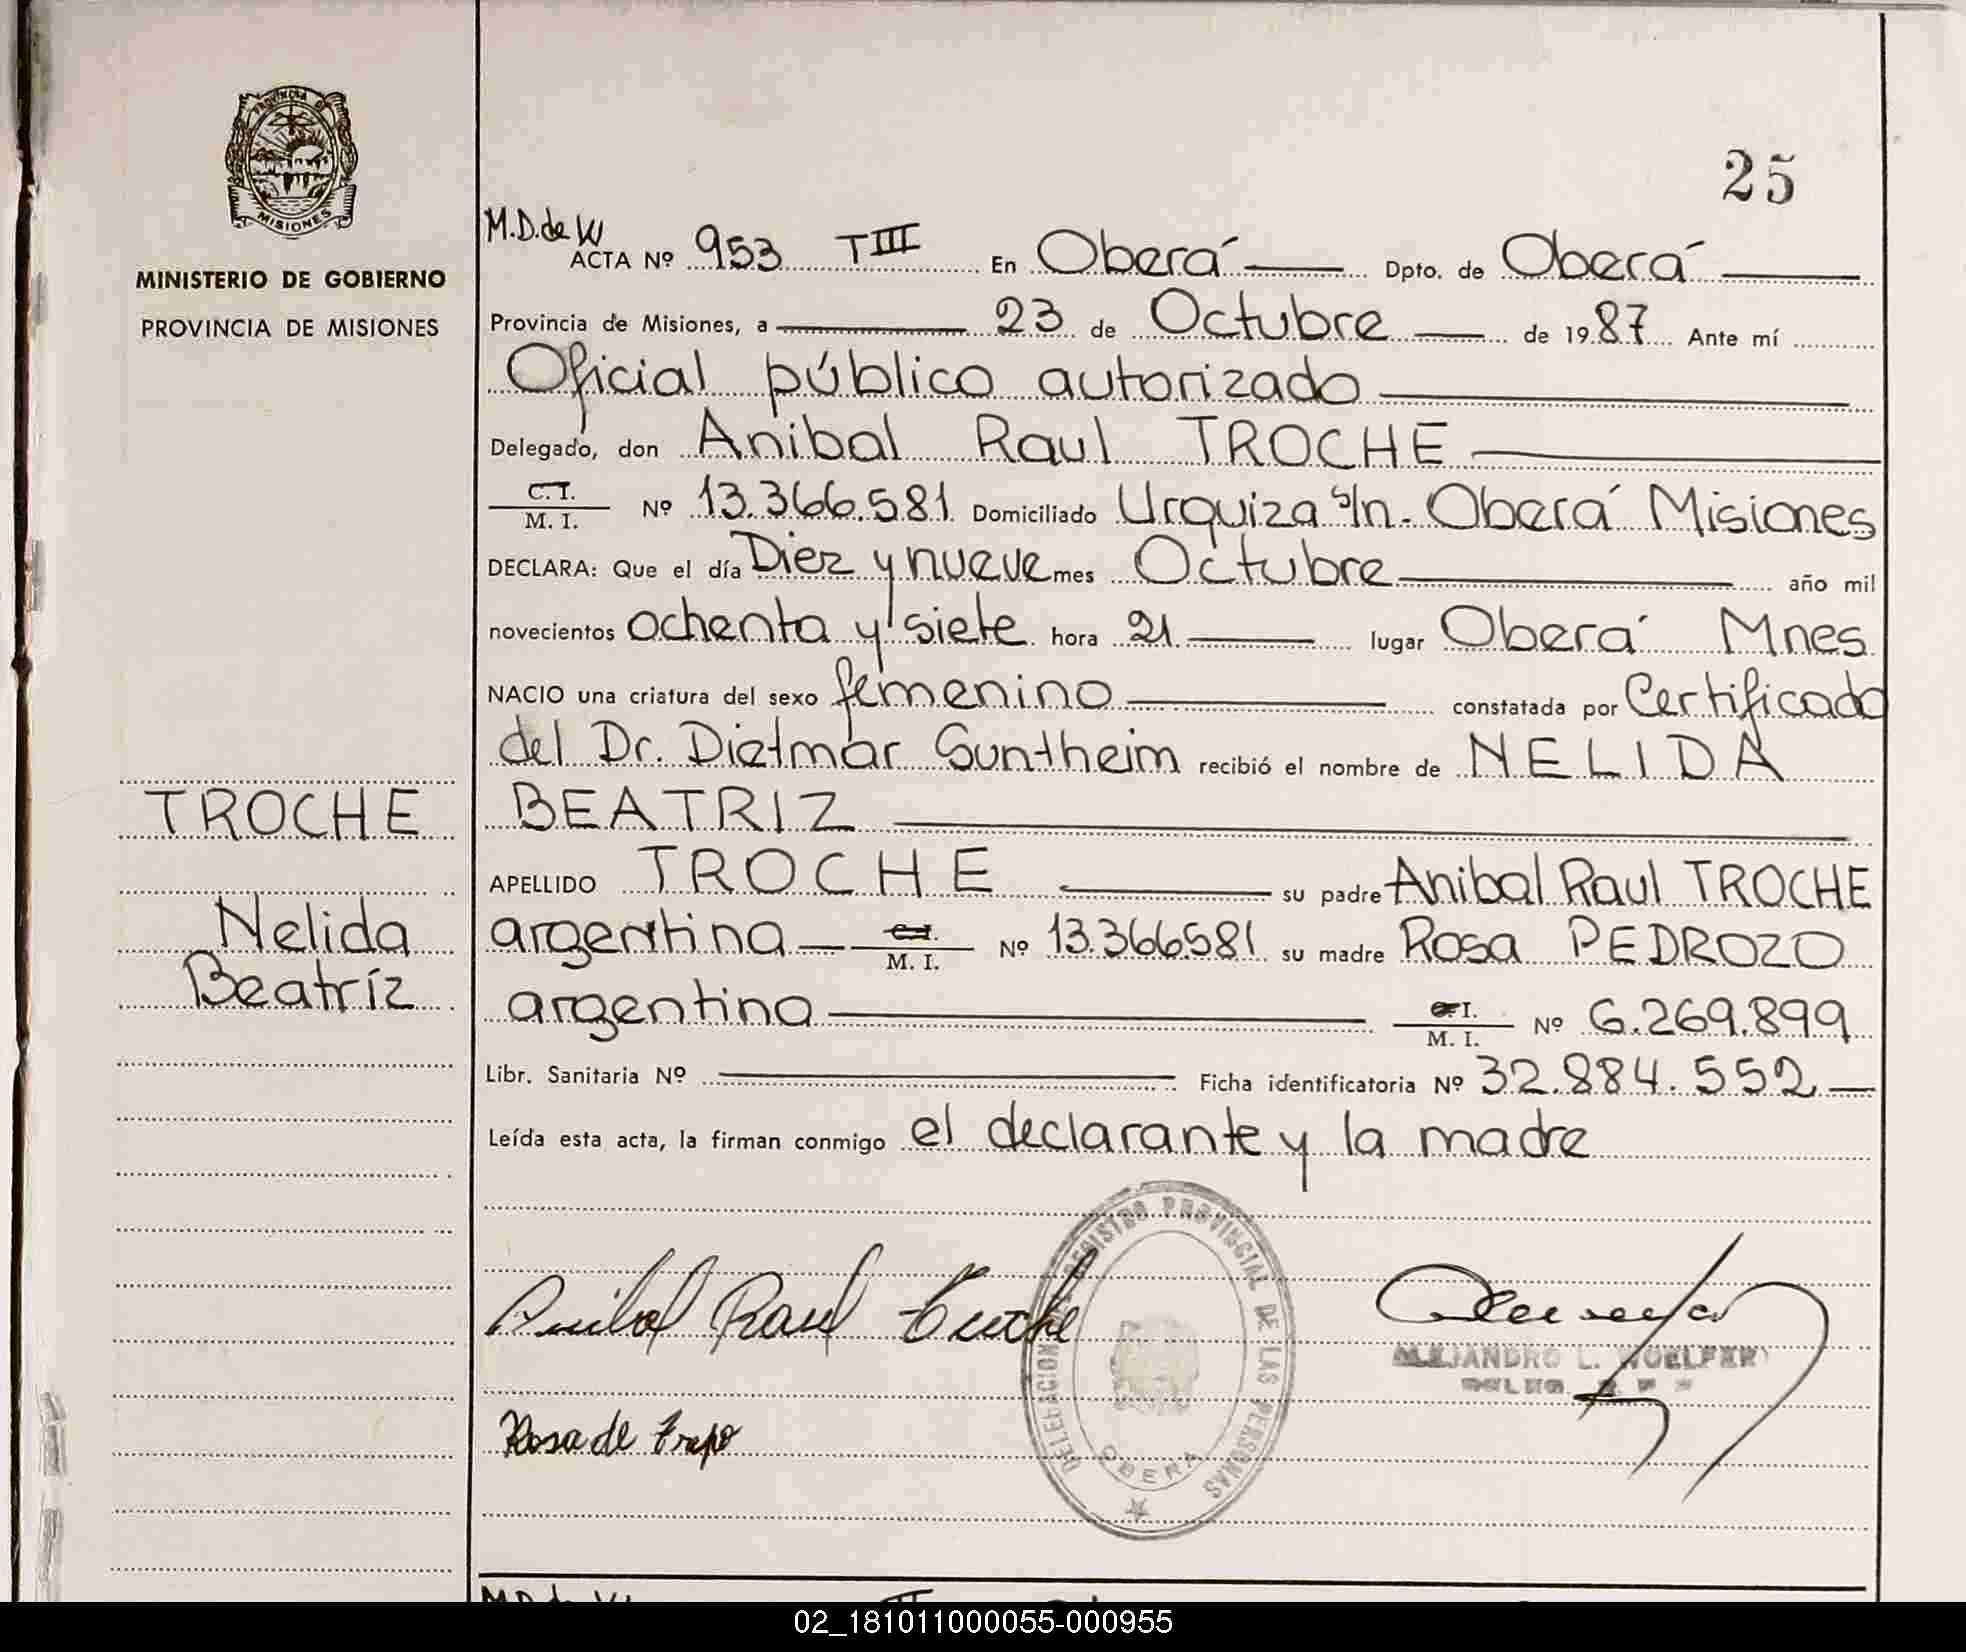 PROVINCIA DE
MISIONES
MINISTERIO DE GOBIERNO
PROVINCIA DE MISIONES
TROCHE
Nelida
Beatríz
25
M.D.de W
ACTA Nº 953 TIII En Oberá Dpto. de Oberá
Provincia de Misiones, a 23 de Octubre de 1987 Ante mí
Oficial público autorizado
Delegado, don Anibal Raul TROCHE
C.I.
M. I. Nº 13.366.581 Domiciliado Urquiza s/n. Oberá Misiones
DECLARA: Que el día Diez y nueve mes Octubre año mil
novecientos ochenta y siete hora 21 lugar Oberá Mnes
NACIO una criatura del sexo femenino constatada por Certificado
del Dr. Dietmar Suntheim recibió el nombre de NELIDA
BEATRIZ
APELLIDO TROCHE su padre Anibal Raul TROCHE
argentina C.I.
M. I. Nº 13.366581 su madre Rosa PEDROZO
argentina C.I.
M. I. Nº 6.269.899
Libr. Sanitaria Nº Ficha identificatoria Nº 32.884.552
Leída esta acta, la firman conmigo el declarante y la madre
DELEGACION REGISTRO PROVINCIAL DE LAS PERSONAS
OBERA
Anibal Raul Troche
ALEJANDRO L. WOELFERT
Rosa de
02_181011000055-000955